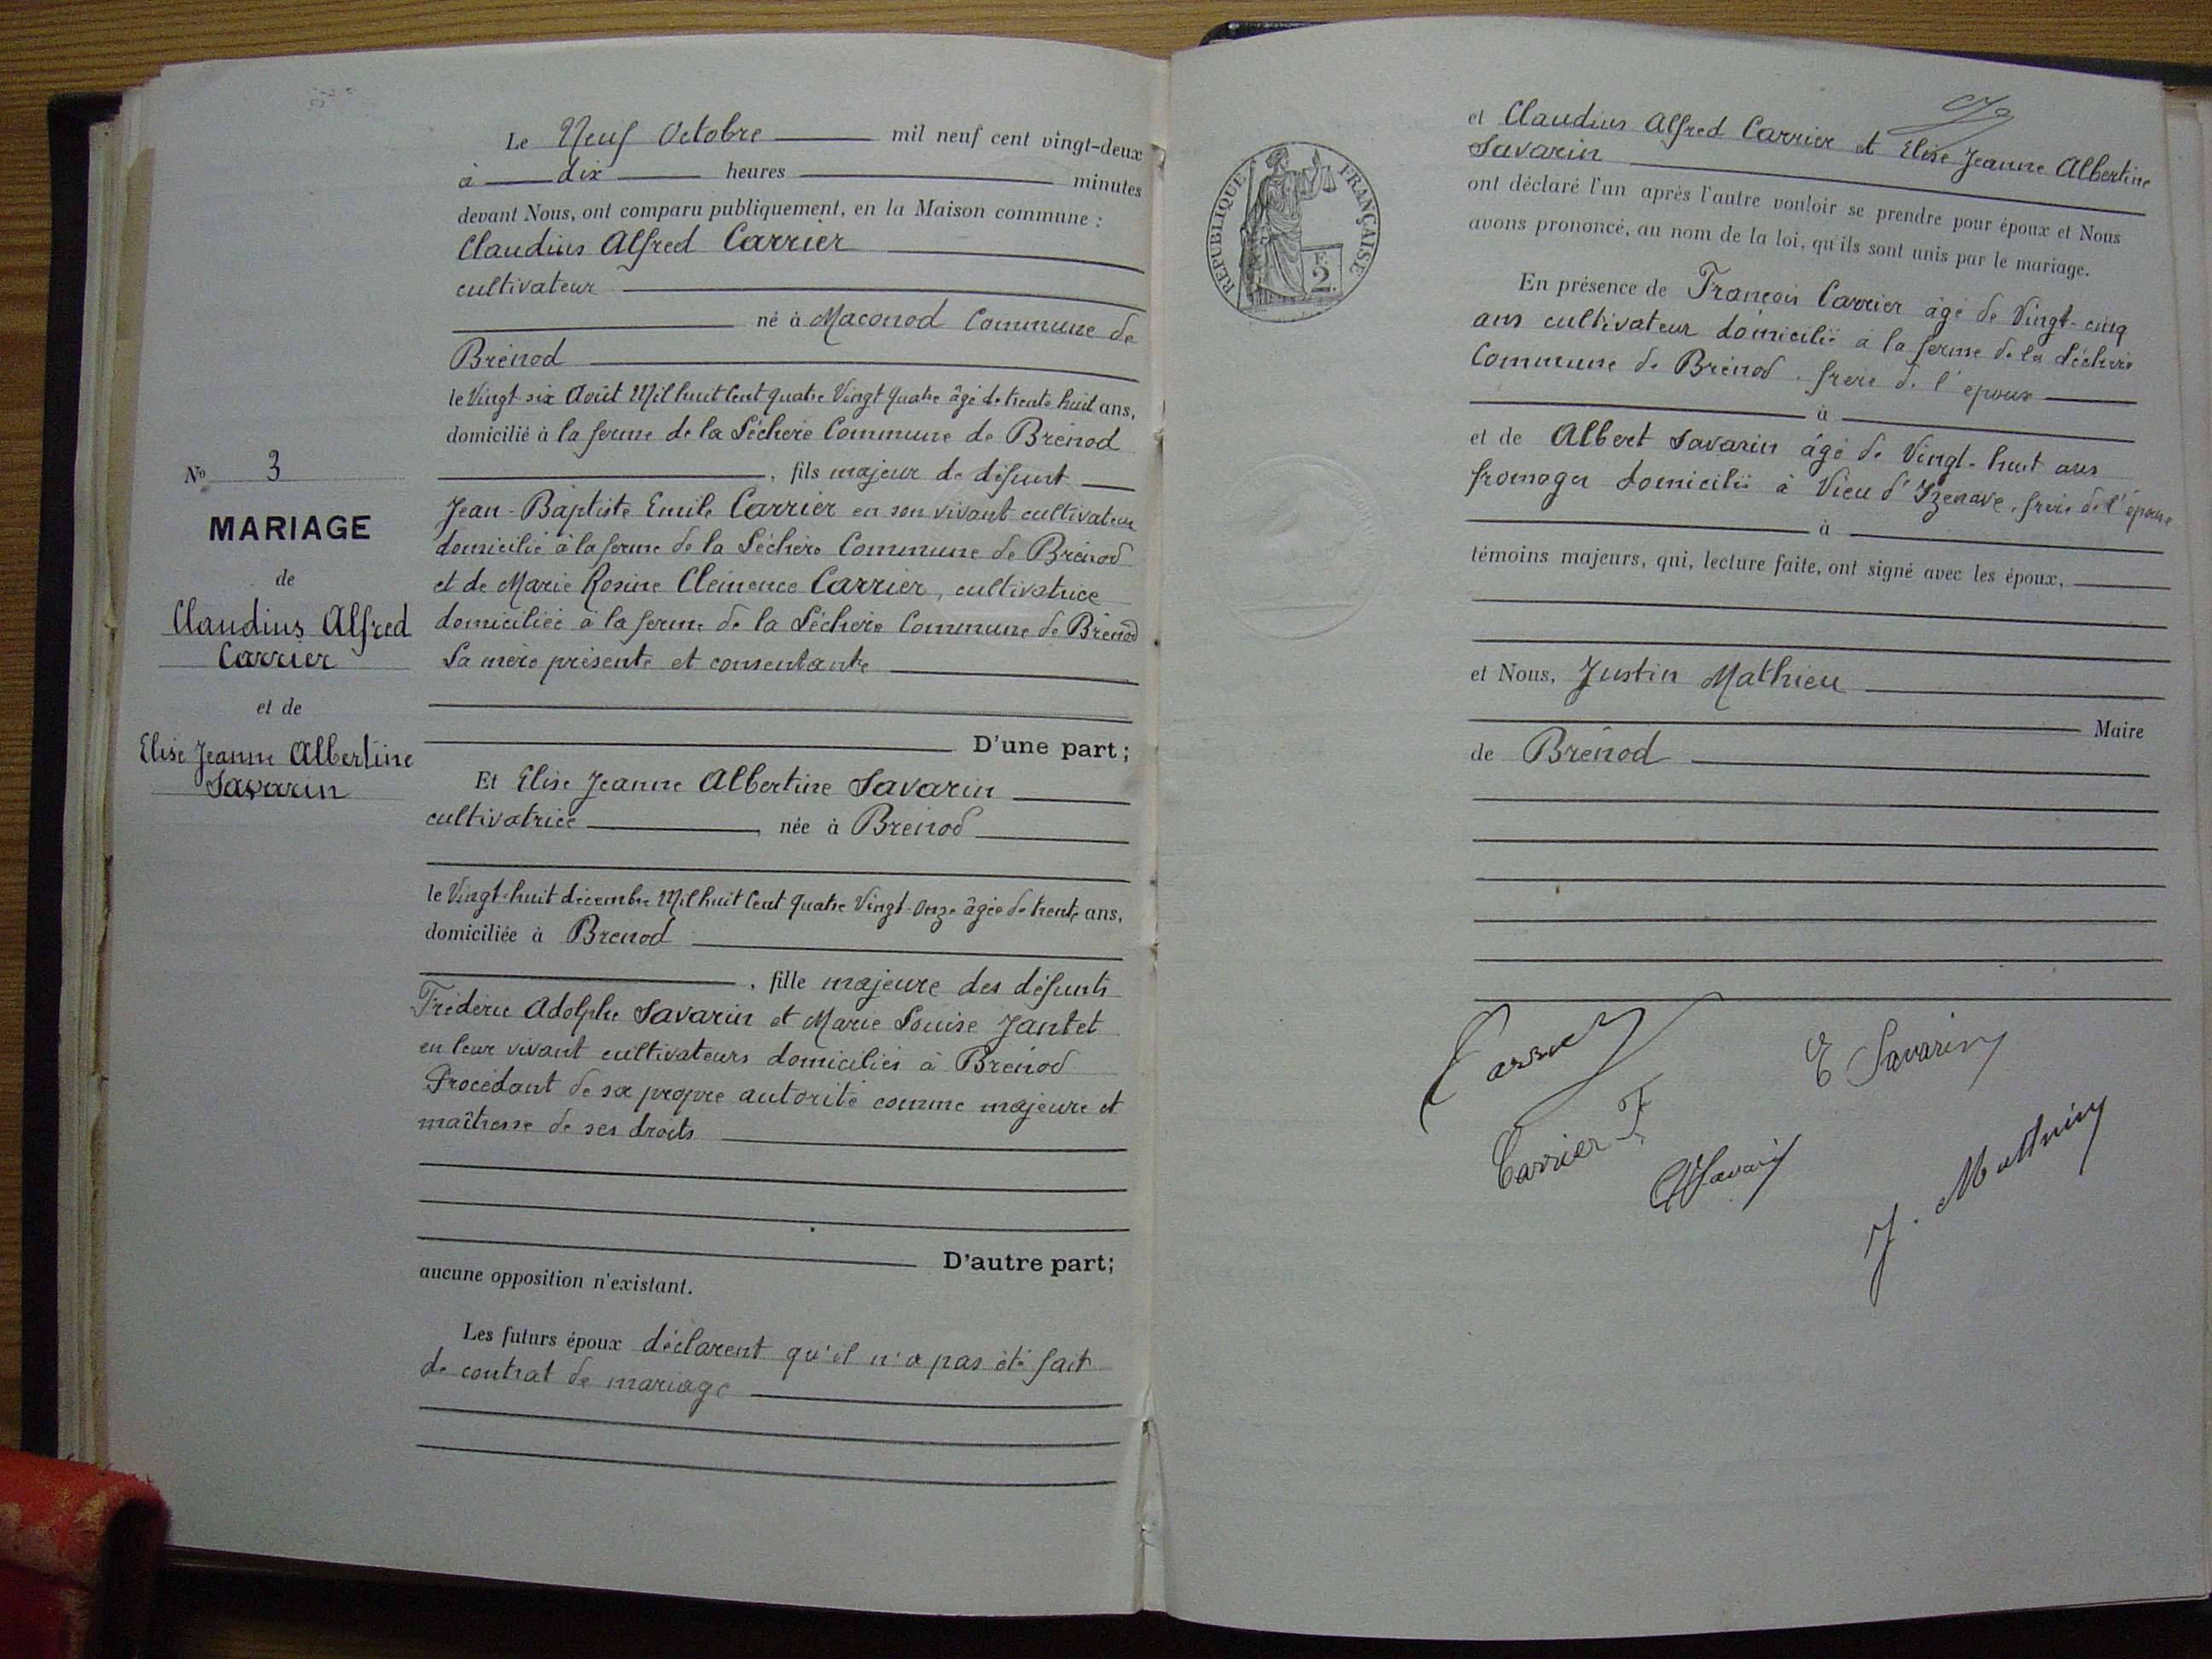 No 3
MARIAGE
de
Claudius Alfred
Carrier
et de
Elise Jeanne Albertine
Savarin
Le Neuf Octobre mil neuf cent vingt-deux
à dix heures minutes
devant Nous, ont comparu publiquement, en la Maison commune :
Claudius Alfred Carrier
cultivateur
né à Maconod Commune de
Brénod
le Vingt six Août Mil huit Cent quatre Vingt quatre âgé de trente huit ans,
domicilié à la ferme de la Léchère Commune de Brénod
, fils majeur de défunt
Jean-Baptiste Emile Carrier en son vivant cultivateur
domicilié à la ferme de la Léchère Commune de Brénod
et de Marie Rosine Clémence Carrier, cultivatrice
domiciliée à la ferme de la Léchère Commune de Brénod
La mère présente et consentante
D'une part ;
Et Elise Jeanne Albertine Savarin
cultivatrice, née à Brénod
le Vingt-huit décembre Mil huit Cent quatre Vingt-onze âgée de trente ans,
domiciliée à Brénod
, fille majeure des défunts
Fréderic Adolphe Savarin et Marie Louise Jantet
en leur vivant cultivateurs domiciliés à Brénod
Procédant de sa propre autorité comme majeure et
maîtresse de ses droits
D'autre part;
aucune opposition n'existant.
Les futurs époux déclarent qu'il n'a pas été fait
de contrat de mariage
REPUBLIQUE FRANÇAISE
F.
2.
et Claudius Alfred Carrier et Elise Jeanne Albertine
Savarin
ont déclaré l'un après l'autre vouloir se prendre pour époux et Nous
avons prononcé, au nom de la loi, qu'ils sont unis par le mariage.
En présence de François Carrier âgé de Vingt-cinq
ans cultivateur domicilié à la ferme de la Léchère
Commune de Brénod, frère de l'époux
à
et de Albert Savarin âgé de Vingt-huit ans
fromager domicilié à Vieu d'Izenave, frère de l'épouse
à
témoins majeurs, qui, lecture faite, ont signé avec les époux,
et Nous, Justin Mathieu
Maire
de Brénod
Carrier
E Savarin
Carrier F
A Savarin
J. Mathieu